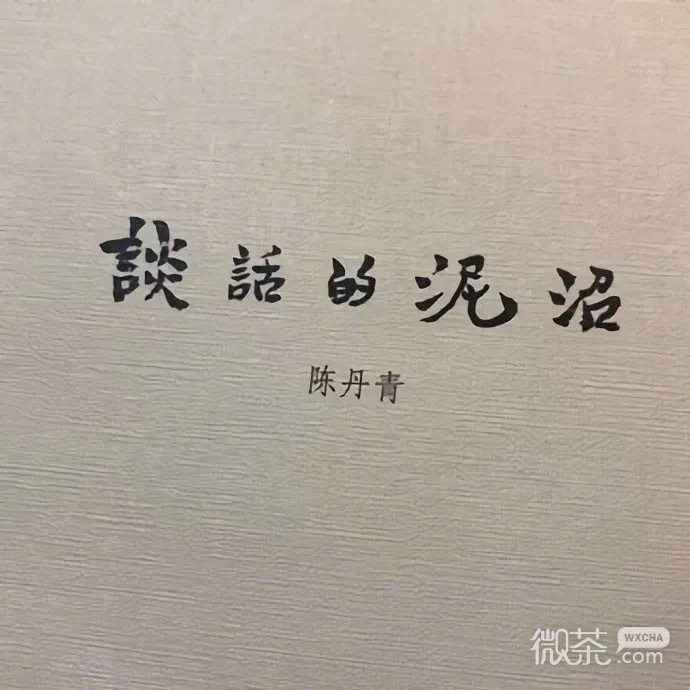 談話的泥沼
陈丹青
微茶
WXCHA
.com